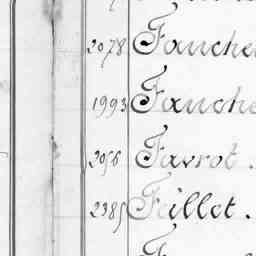 2078 Fauche
1993 Fauche
2056 Favrot.
2385 Feillet.